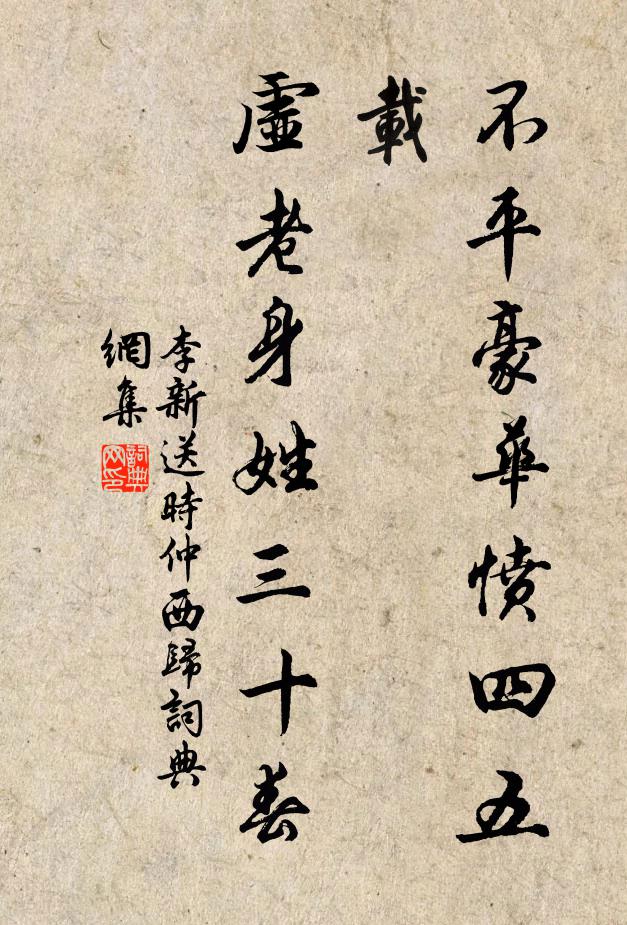 不平豪華憤四五
載
虛老身姓三十春
李新送時仲西歸詞典
網集
詞典
网印